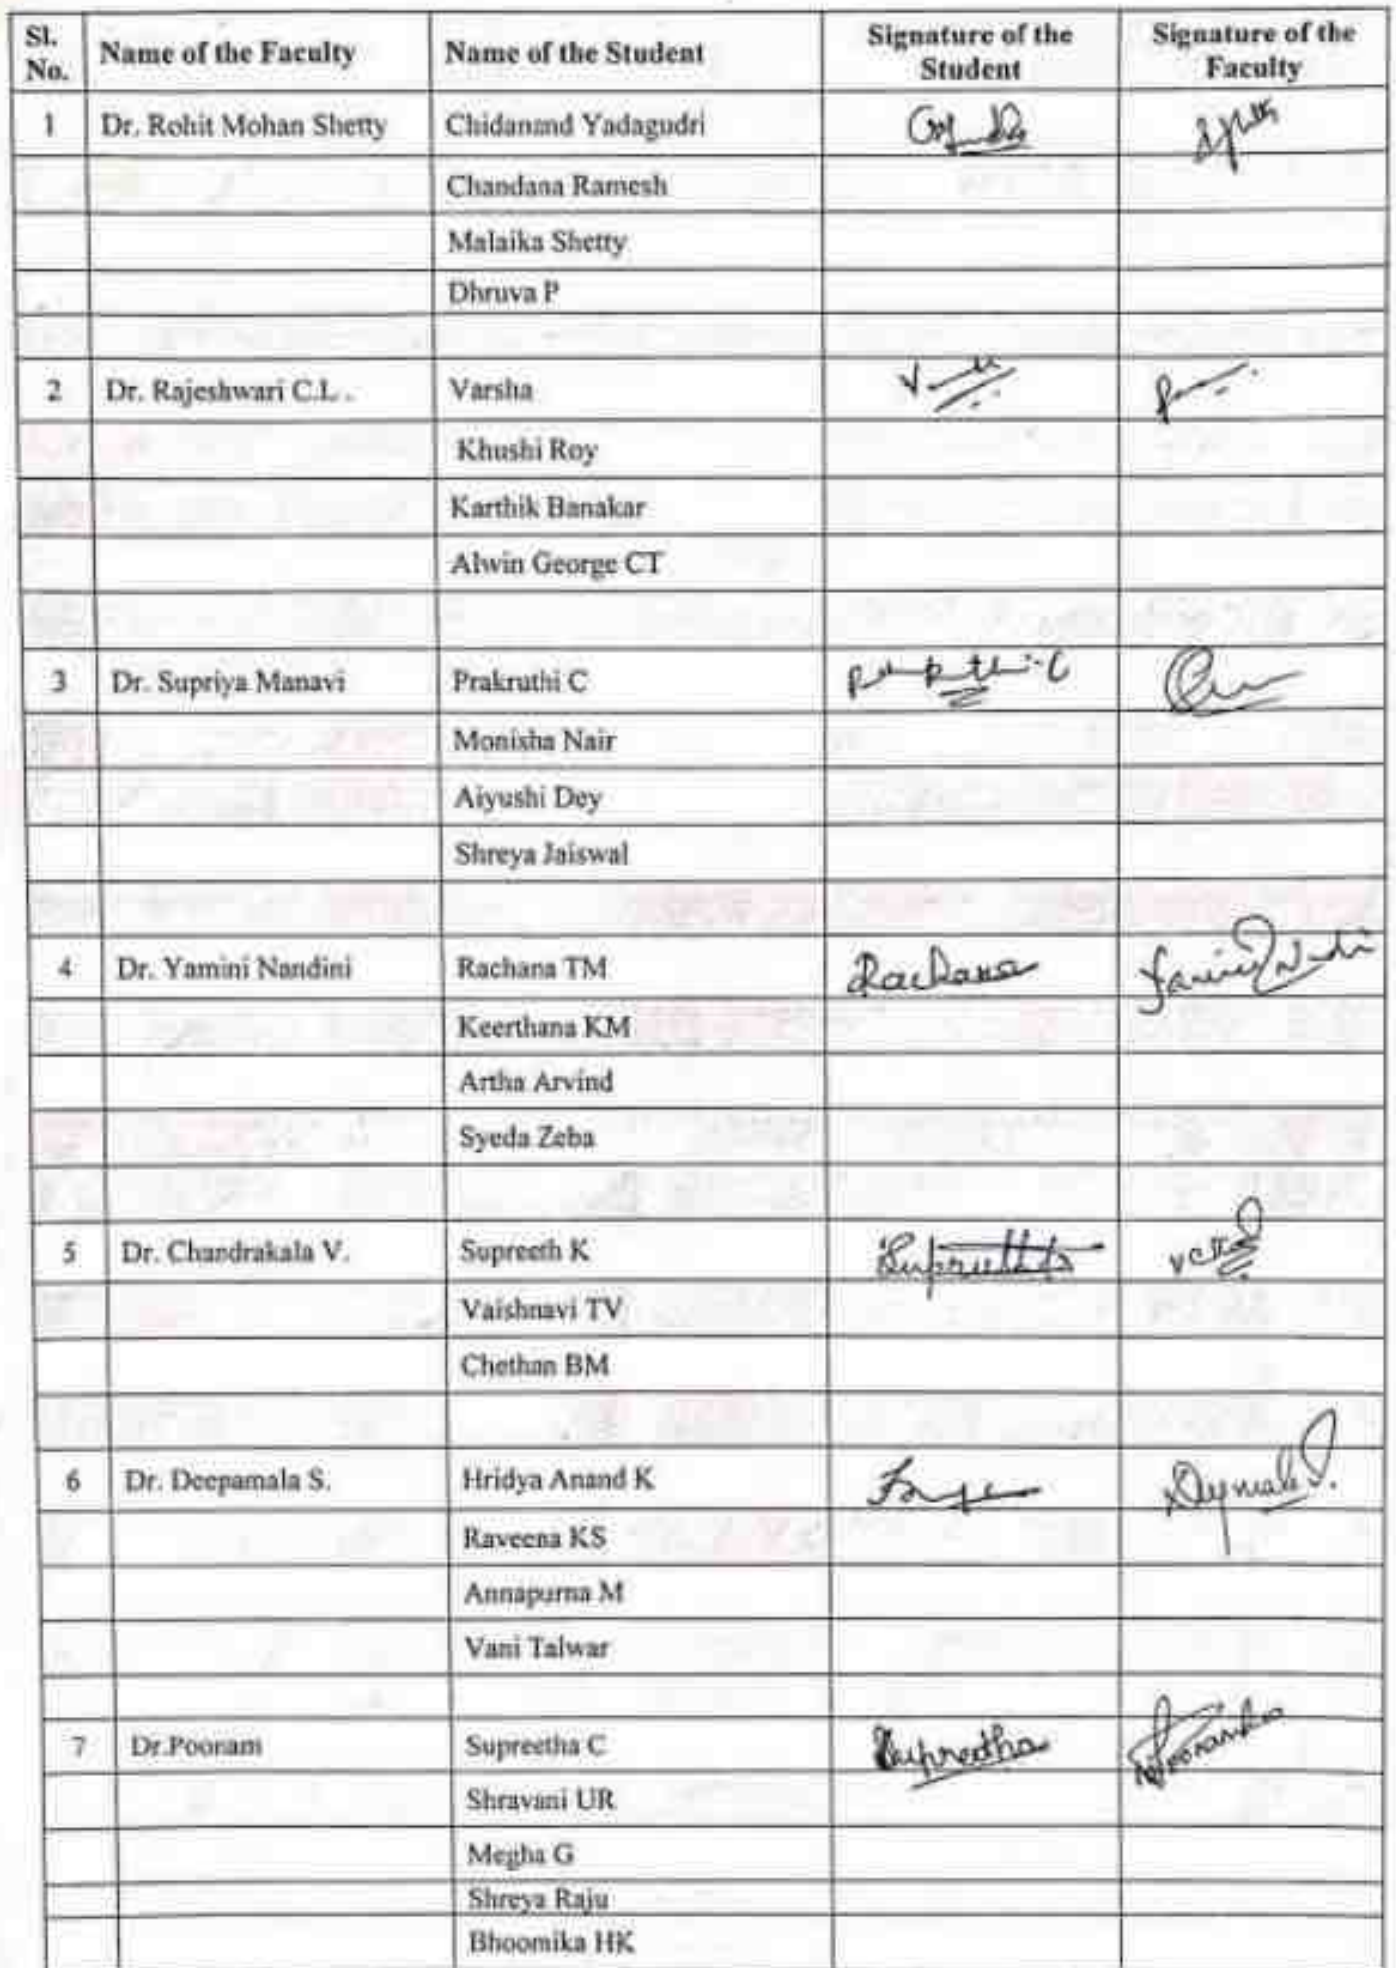 Sl. No. Name of the Faculty Name of the Student Signature of the Student Signature of the Faculty
1 Dr. Rohit Mohan Shetty Chidanand Yadagudri
Chandana Ramesh
Malaika Shetty
Dhruva P
2 Dr. Rajeshwari C.L. Varsha
Khushi Roy
Karthik Banakar
Alwin George CT
3 Dr. Supriya Manavi Prakruthi C Prakruthi-C
Monisha Nair
Aiyushi Dey
Shreya Jaiswal
4 Dr. Yamini Nandini Rachana TM Rachana
Keerthana KM
Artha Arvind
Syeda Zeba
5 Dr. Chandrakala V. Supreeth K
Vaishnavi TV
Chethan BM
6 Dr. Deepamala S. Hridya Anand K
Raveena KS
Annapurna M
Vani Talwar
7 Dr.Poonam Supreetha C Supreetha
Shravani UR
Megha G
Shreya Raju
Bhoomika HK